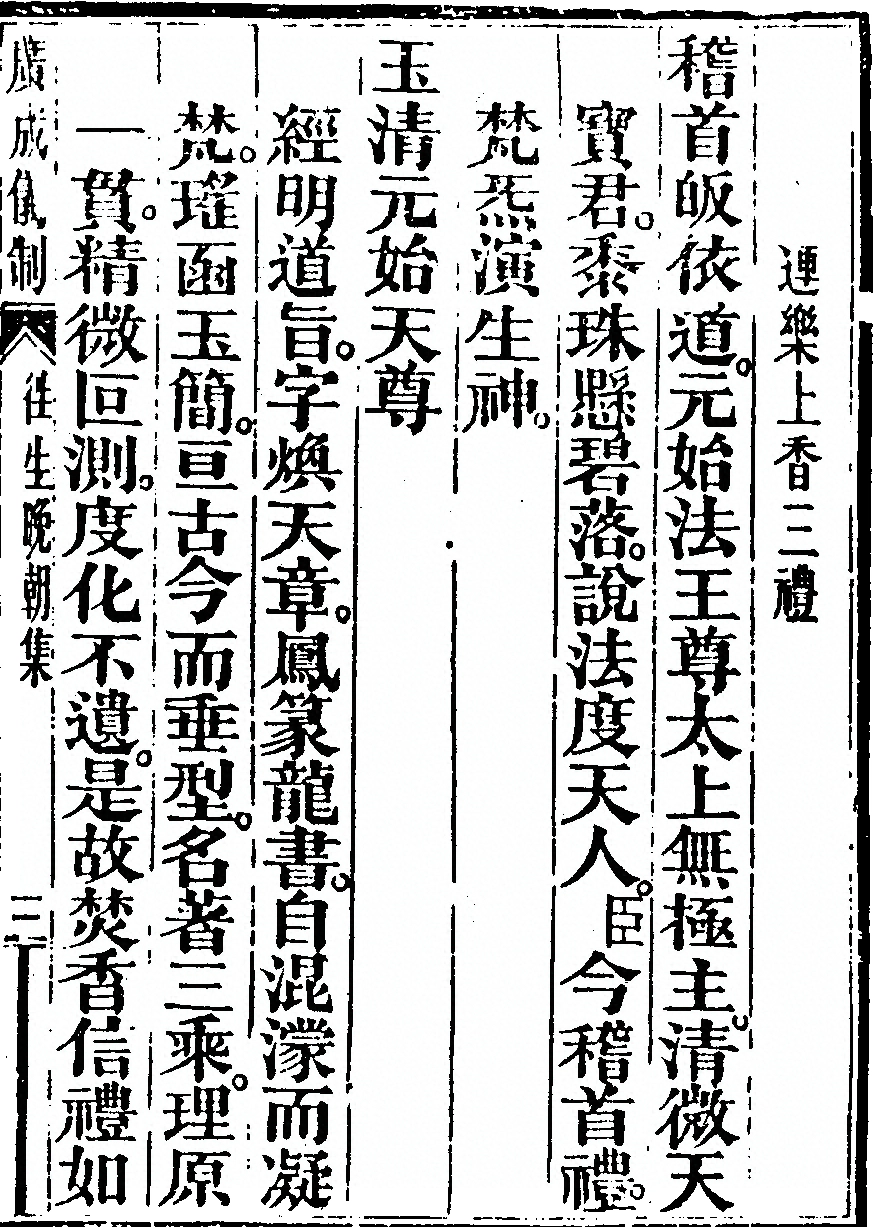 運樂上香三禮
稽首皈依道。元始法王尊太上無極主。清微天
寶君。黍珠懸碧落。說法度天人。臣今稽首禮。
梵炁演生神。
玉清元始天尊
經明道旨。字煥天章。鳳篆龍書。自混濛而凝
梵。瑤函玉簡。亘古今而垂型。名著三乘。理原
一貫。精微叵測。度化不遺。是故焚香信禮如
廣成儀制 往生晚朝集 三